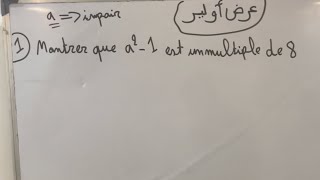 a => impair
عرض أولير
① Montrer que a² - 1 est un multiple de 8